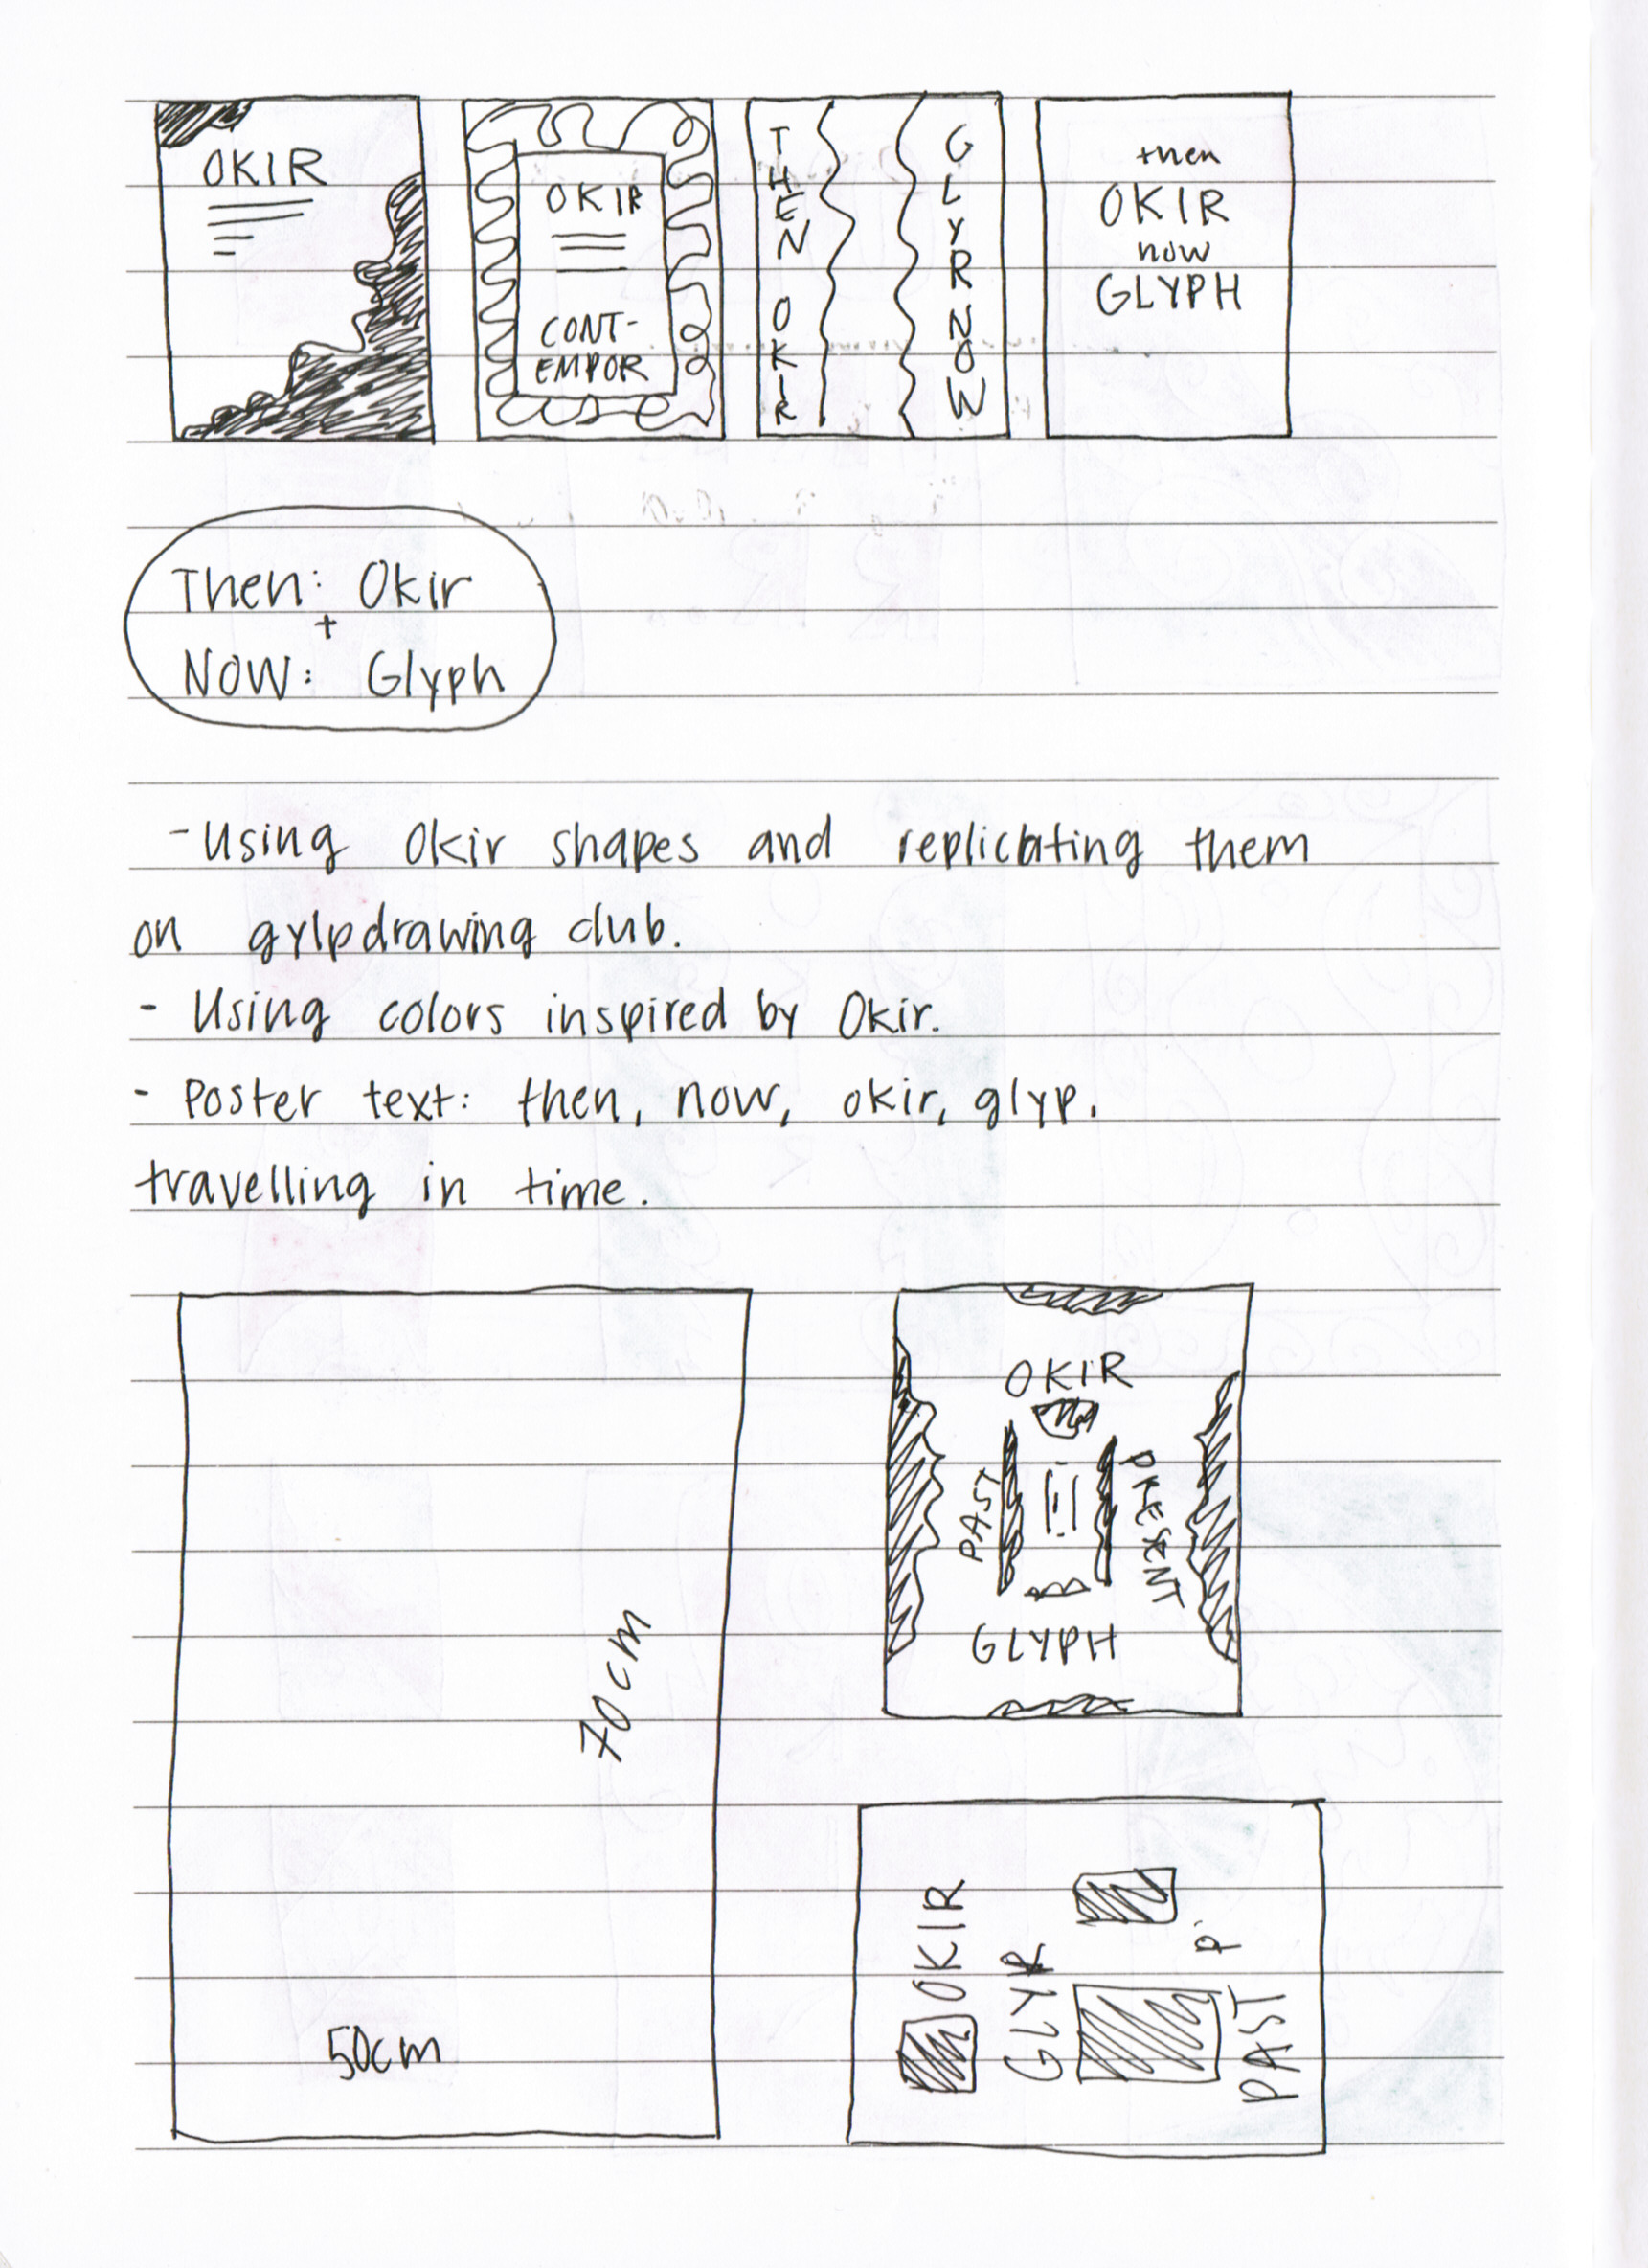 OKIR
OKIR
CONT-
EMPOR
THEN OKIR
GLYR NOW
then
OKIR
now
GLYPH
Then: Okir
+
NOW: Glyph
- Using Okir shapes and replicating them
on gylpdrawing club.
- Using colors inspired by Okir.
- Poster text: then, now, okir, glyp.
travelling in time.
70cm
50cm
OKIR
PAST
PRESENT
GLYPH
OKIR
GLYP
P
PAST